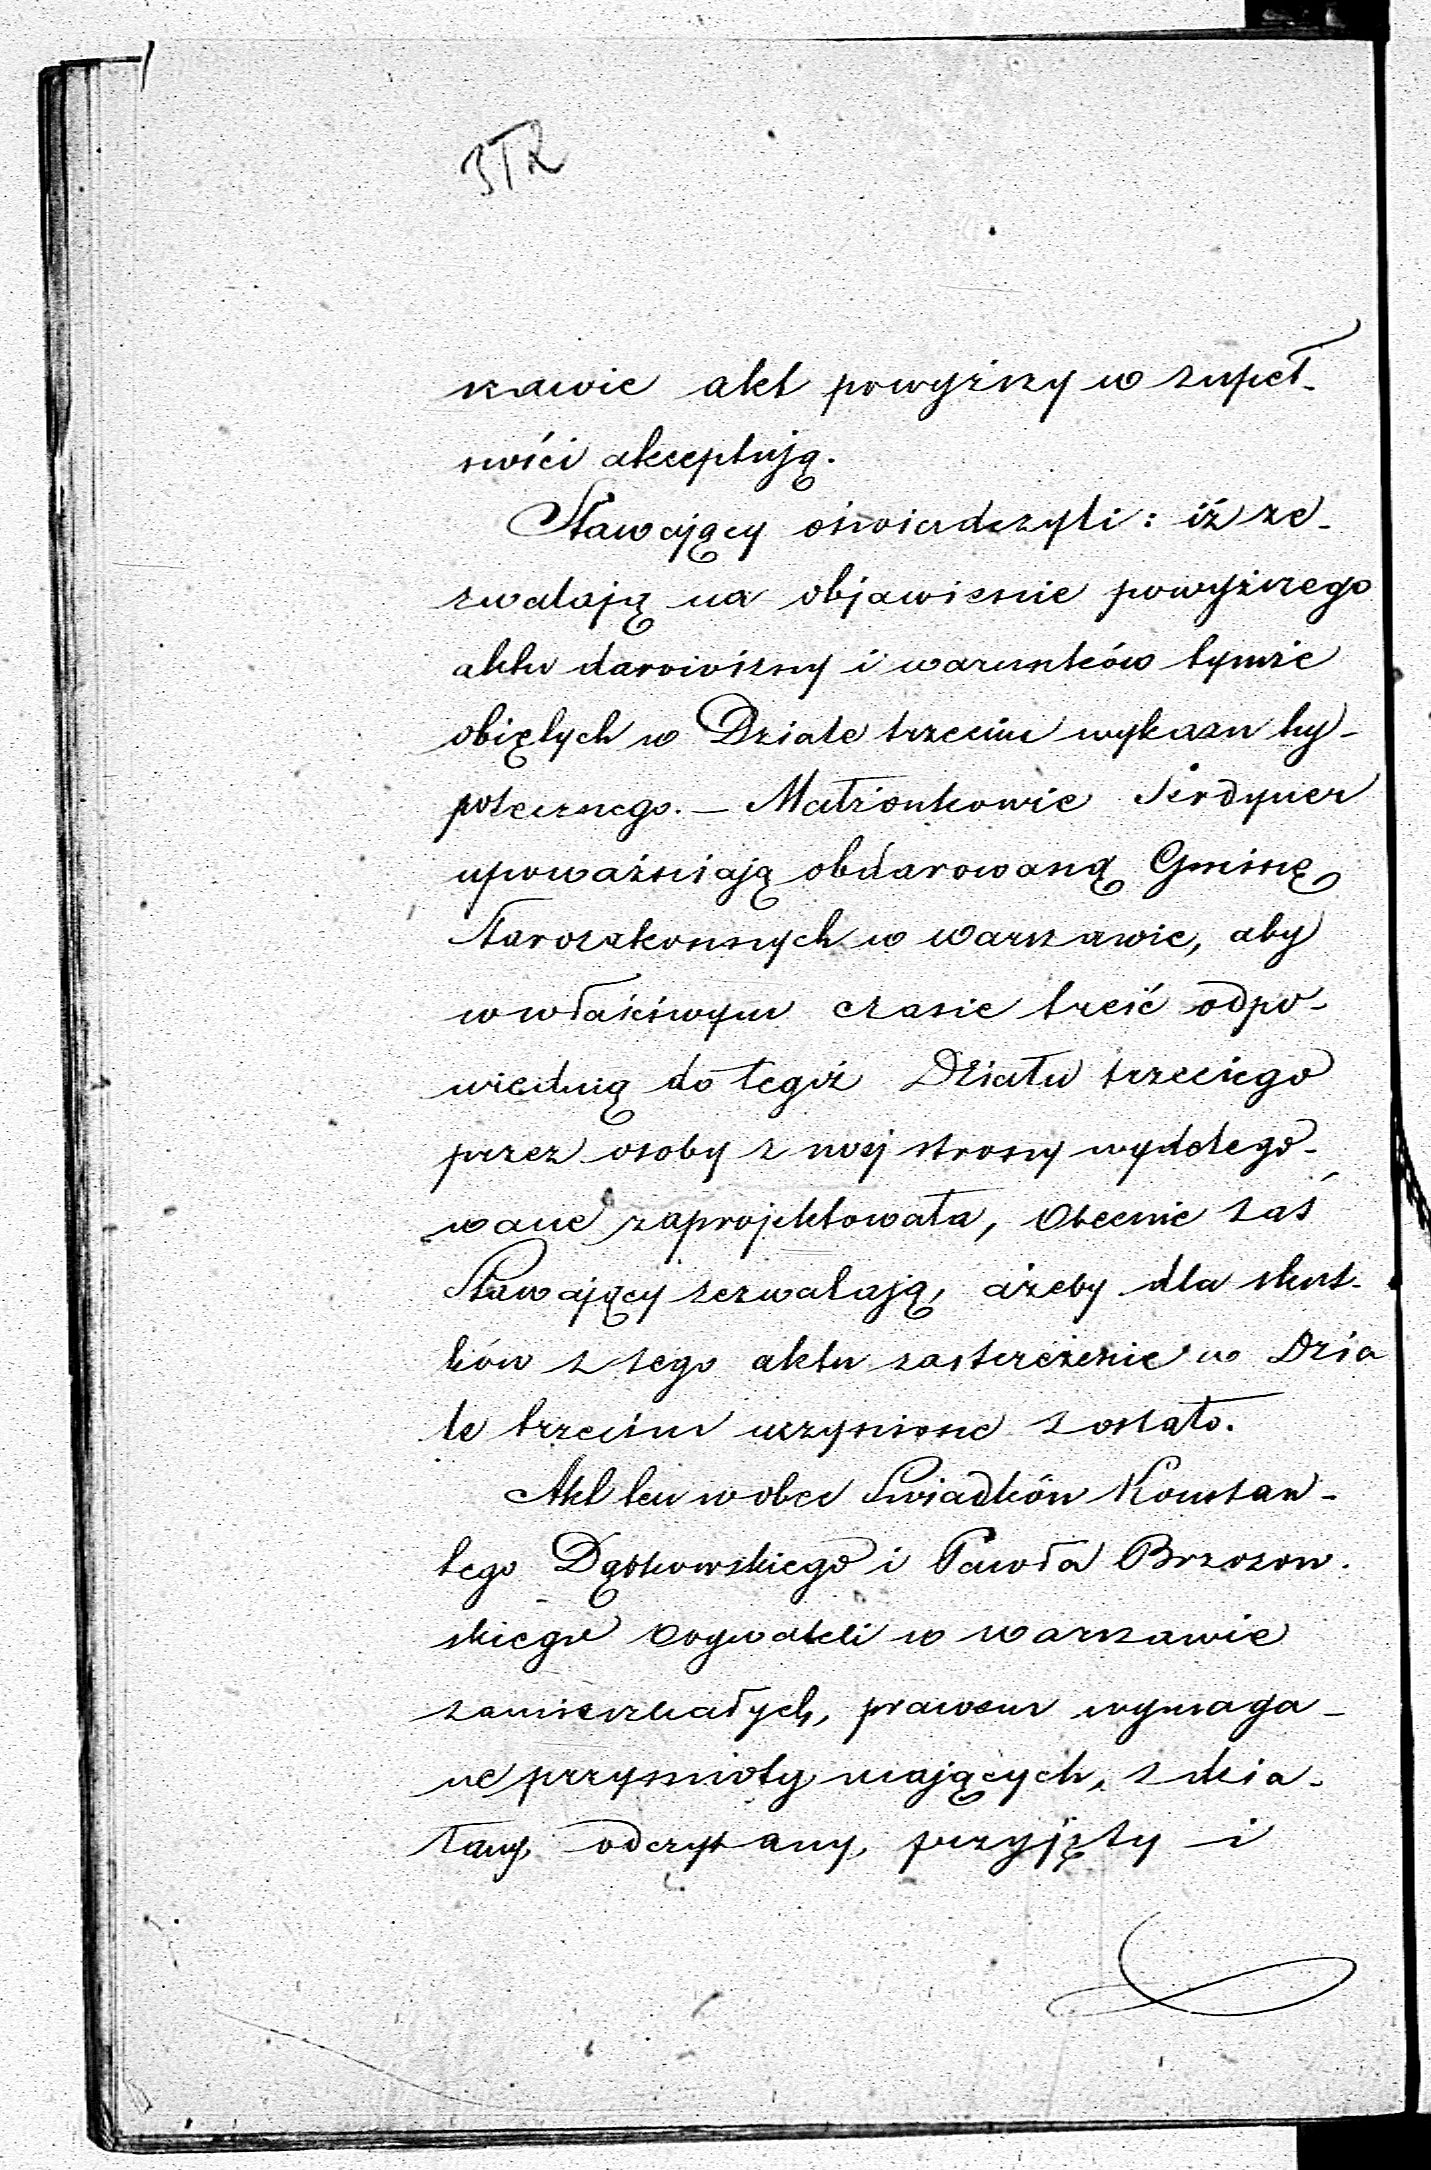 szawie akt powyższy w zupeł-
ności akceptują.
Stawający oświadczyli: iż ze-
zwalają na objawienie powyższego
aktu darowizny i warunków tymże
objętych w Dziale trzecim wykazu hy-
potecznego. – Małżonkowie Serdyner
upoważniają obdarowaną Gminę
Starozakonnych w Warszawie, aby
w właściwym czasie treść odpo-
wiednią do tegoż Działu trzeciego
przez osoby z swej strony wydelego-
wane zaprojektowała, Obecnie zaś
Stawający zezwalają, ażeby dla skut-
ków z tego aktu zastrzeżenie w Dzia
le trzecim uczynione zostało.
Akt ten wobec Świadków Konstan-
tego Dąbkowskiego i Pawła Brzozow-
skiego Obywateli w Warszawie
zamieszkałych, prawem wymaga-
ne przymioty mających, zdzia-
łany, odczytany, przyjęty i